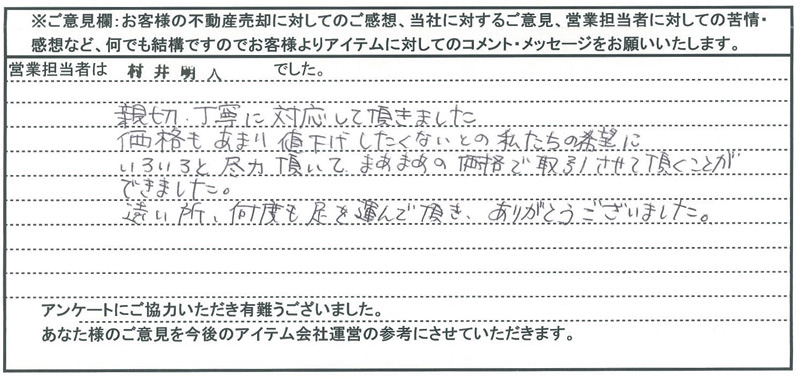 ※ご意見欄:お客様の不動産売却に対してのご感想、当社に対するご意見、営業担当者に対しての苦情・
感想など、何でも結構ですのでお客様よりアイテムに対してのコメント・メッセージをお願いいたします。
営業担当者は 村井明人 でした。
親切、丁寧に対応して頂きました
価格もあまり値下げしたくないとの私たちの希望に
いろいろと尽力頂いて、まあまあの価格で取引させて頂くことが
できました。
遠い所、何度も足を運んで頂き、ありがとうございました。
アンケートにご協力いただき有難うございました。
あなた様のご意見を今後のアイテム会社運営の参考にさせていただきます。